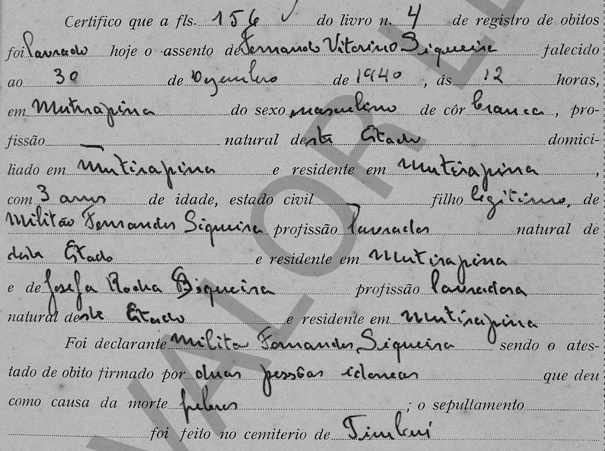 Certifico que a fls. 156 do livro n. 4 de registro de obitos
foi lavrado hoje o assento de Fernando Vitorino Siqueira falecido
ao 30 de Dezembro de 1940, ás 12 horas,
em Mutirapina do sexo masculino de côr branca, pro-
fissão natural deste Estado domici-
liado em Mutirapina e residente em Mutirapina,
com 3 anos de idade, estado civil filho legitimo, de
Militão Fernandes Siqueira profissão lavrador natural de
deste Estado e residente em Mutirapina
e de Josefa Rocha Siqueira profissão lavradora
natural deste Estado e residente em Mutirapina
Foi declarante Militão Fernandes Siqueira sendo o ates-
tado de obito firmado por duas pessôas idoneas que deu
como causa da morte febres; o sepultamento
foi feito no cemiterio de
VALOR